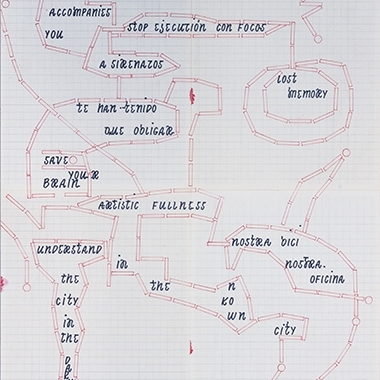 ACCOMPANIES
YOU
STOP EJECUCIÓN CON FOCOS
A SIRENATOS
LOST
MEMORY
TE HAN TENIDO
QUE OBLIGAR
SAVE
YOUR
BRAIN
ARTISTIC FULLNESS
NOSTRA BICI
NOSTRA
OFICINA
UNDERSTAND
in
the
city
in
the
the
N
KO
WN
city